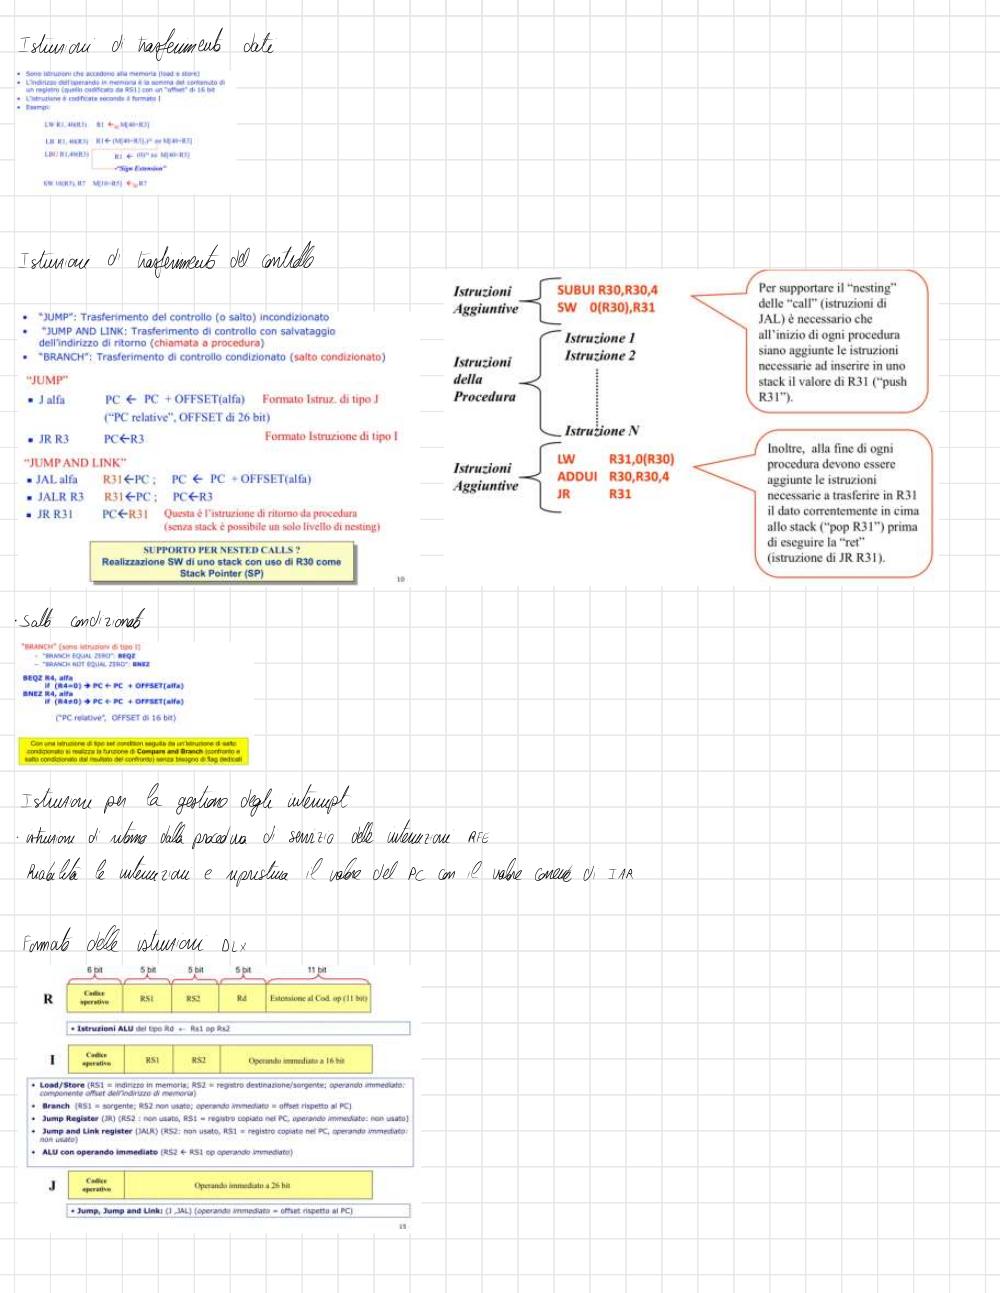 Istruzioni di trasferimento dati
• Sono istruzioni che accedono alla memoria (load e store)
• L'indirizzo dell'operando in memoria è la somma del contenuto di
un registro (quello codificato da RS1) con un "offset" di 16 bit
• L'istruzione è codificata secondo il formato I
• Esempi:
LW R1, 40(R3) R1 ←32 M[40+R3]
LB R1, 40(R3) R1 ← (M[40+R3]7)24 ## M[40+R3]
LBU R1,40(R3) R1 ← (0)24 ## M[40+R3]
"Sign Extension"
SW 10(R5), R7 M[10+R5] ←32 R7
Istruzione di trasferimento del controllo
• "JUMP": Trasferimento del controllo (o salto) incondizionato
• "JUMP AND LINK: Trasferimento di controllo con salvataggio
dell'indirizzo di ritorno (chiamata a procedura)
• "BRANCH": Trasferimento di controllo condizionato (salto condizionato)
"JUMP"
▪ J alfa PC ← PC + OFFSET(alfa) Formato Istruz. di tipo J
("PC relative", OFFSET di 26 bit)
▪ JR R3 PC←R3 Formato Istruzione di tipo I
"JUMP AND LINK"
▪ JAL alfa R31←PC ; PC ← PC + OFFSET(alfa)
▪ JALR R3 R31←PC ; PC←R3
▪ JR R31 PC←R31 Questa è l'istruzione di ritorno da procedura
(senza stack è possibile un solo livello di nesting)
SUPPORTO PER NESTED CALLS ?
Realizzazione SW di uno stack con uso di R30 come
Stack Pointer (SP)
10
Istruzioni
Aggiuntive
SUBUI R30,R30,4
SW 0(R30),R31
Istruzioni
della
Procedura
Istruzione 1
Istruzione 2
Istruzione N
Istruzioni
Aggiuntive
LW R31,0(R30)
ADDUI R30,R30,4
JR R31
Per supportare il "nesting"
delle "call" (istruzioni di
JAL) è necessario che
all'inizio di ogni procedura
siano aggiunte le istruzioni
necessarie ad inserire in uno
stack il valore di R31 ("push
R31").
Inoltre, alla fine di ogni
procedura devono essere
aggiunte le istruzioni
necessarie a trasferire in R31
il dato correntemente in cima
allo stack ("pop R31") prima
di eseguire la "ret"
(istruzione di JR R31).
· Salto condizionato
"BRANCH" (sono istruzioni di tipo I)
– "BRANCH EQUAL ZERO": BEQZ
– "BRANCH NOT EQUAL ZERO": BNEZ
BEQZ R4, alfa
if (R4=0) → PC ← PC + OFFSET(alfa)
BNEZ R4, alfa
if (R4≠0) → PC ← PC + OFFSET(alfa)
("PC relative", OFFSET di 16 bit)
Con una istruzione di tipo set condition seguita da un'istruzione di salto
condizionato si realizza la funzione di Compare and Branch (confronto e
salto condizionato dal risultato del confronto) senza bisogno di flag dedicati
Istruzione per la gestione degli interrupt
· istruzione di ritorno dalla procedura di servizio delle interruzione RFE
Riabilita le interruzioni e ripristina il valore del PC con il valore corrente di IAR
Formato delle istruzioni DLX
6 bit 5 bit 5 bit 5 bit 11 bit
R Codice operativo RS1 RS2 Rd Estensione al Cod. op (11 bit)
• Istruzioni ALU del tipo Rd ← Rs1 op Rs2
I Codice operativo RS1 RS2 Operando immediato a 16 bit
• Load/Store (RS1 = indirizzo in memoria; RS2 = registro destinazione/sorgente; operando immediato:
componente offset dell'indirizzo di memoria)
• Branch (RS1 = sorgente; RS2 non usato; operando immediato = offset rispetto al PC)
• Jump Register (JR) (RS2 : non usato, RS1 = registro copiato nel PC, operando immediato: non usato)
• Jump and Link register (JALR) (RS2: non usato, RS1 = registro copiato nel PC, operando immediato:
non usato)
• ALU con operando immediato (RS2 ← RS1 op operando immediato)
J Codice operativo Operando immediato a 26 bit
• Jump, Jump and Link: (J ,JAL) (operando immediato = offset rispetto al PC)
15